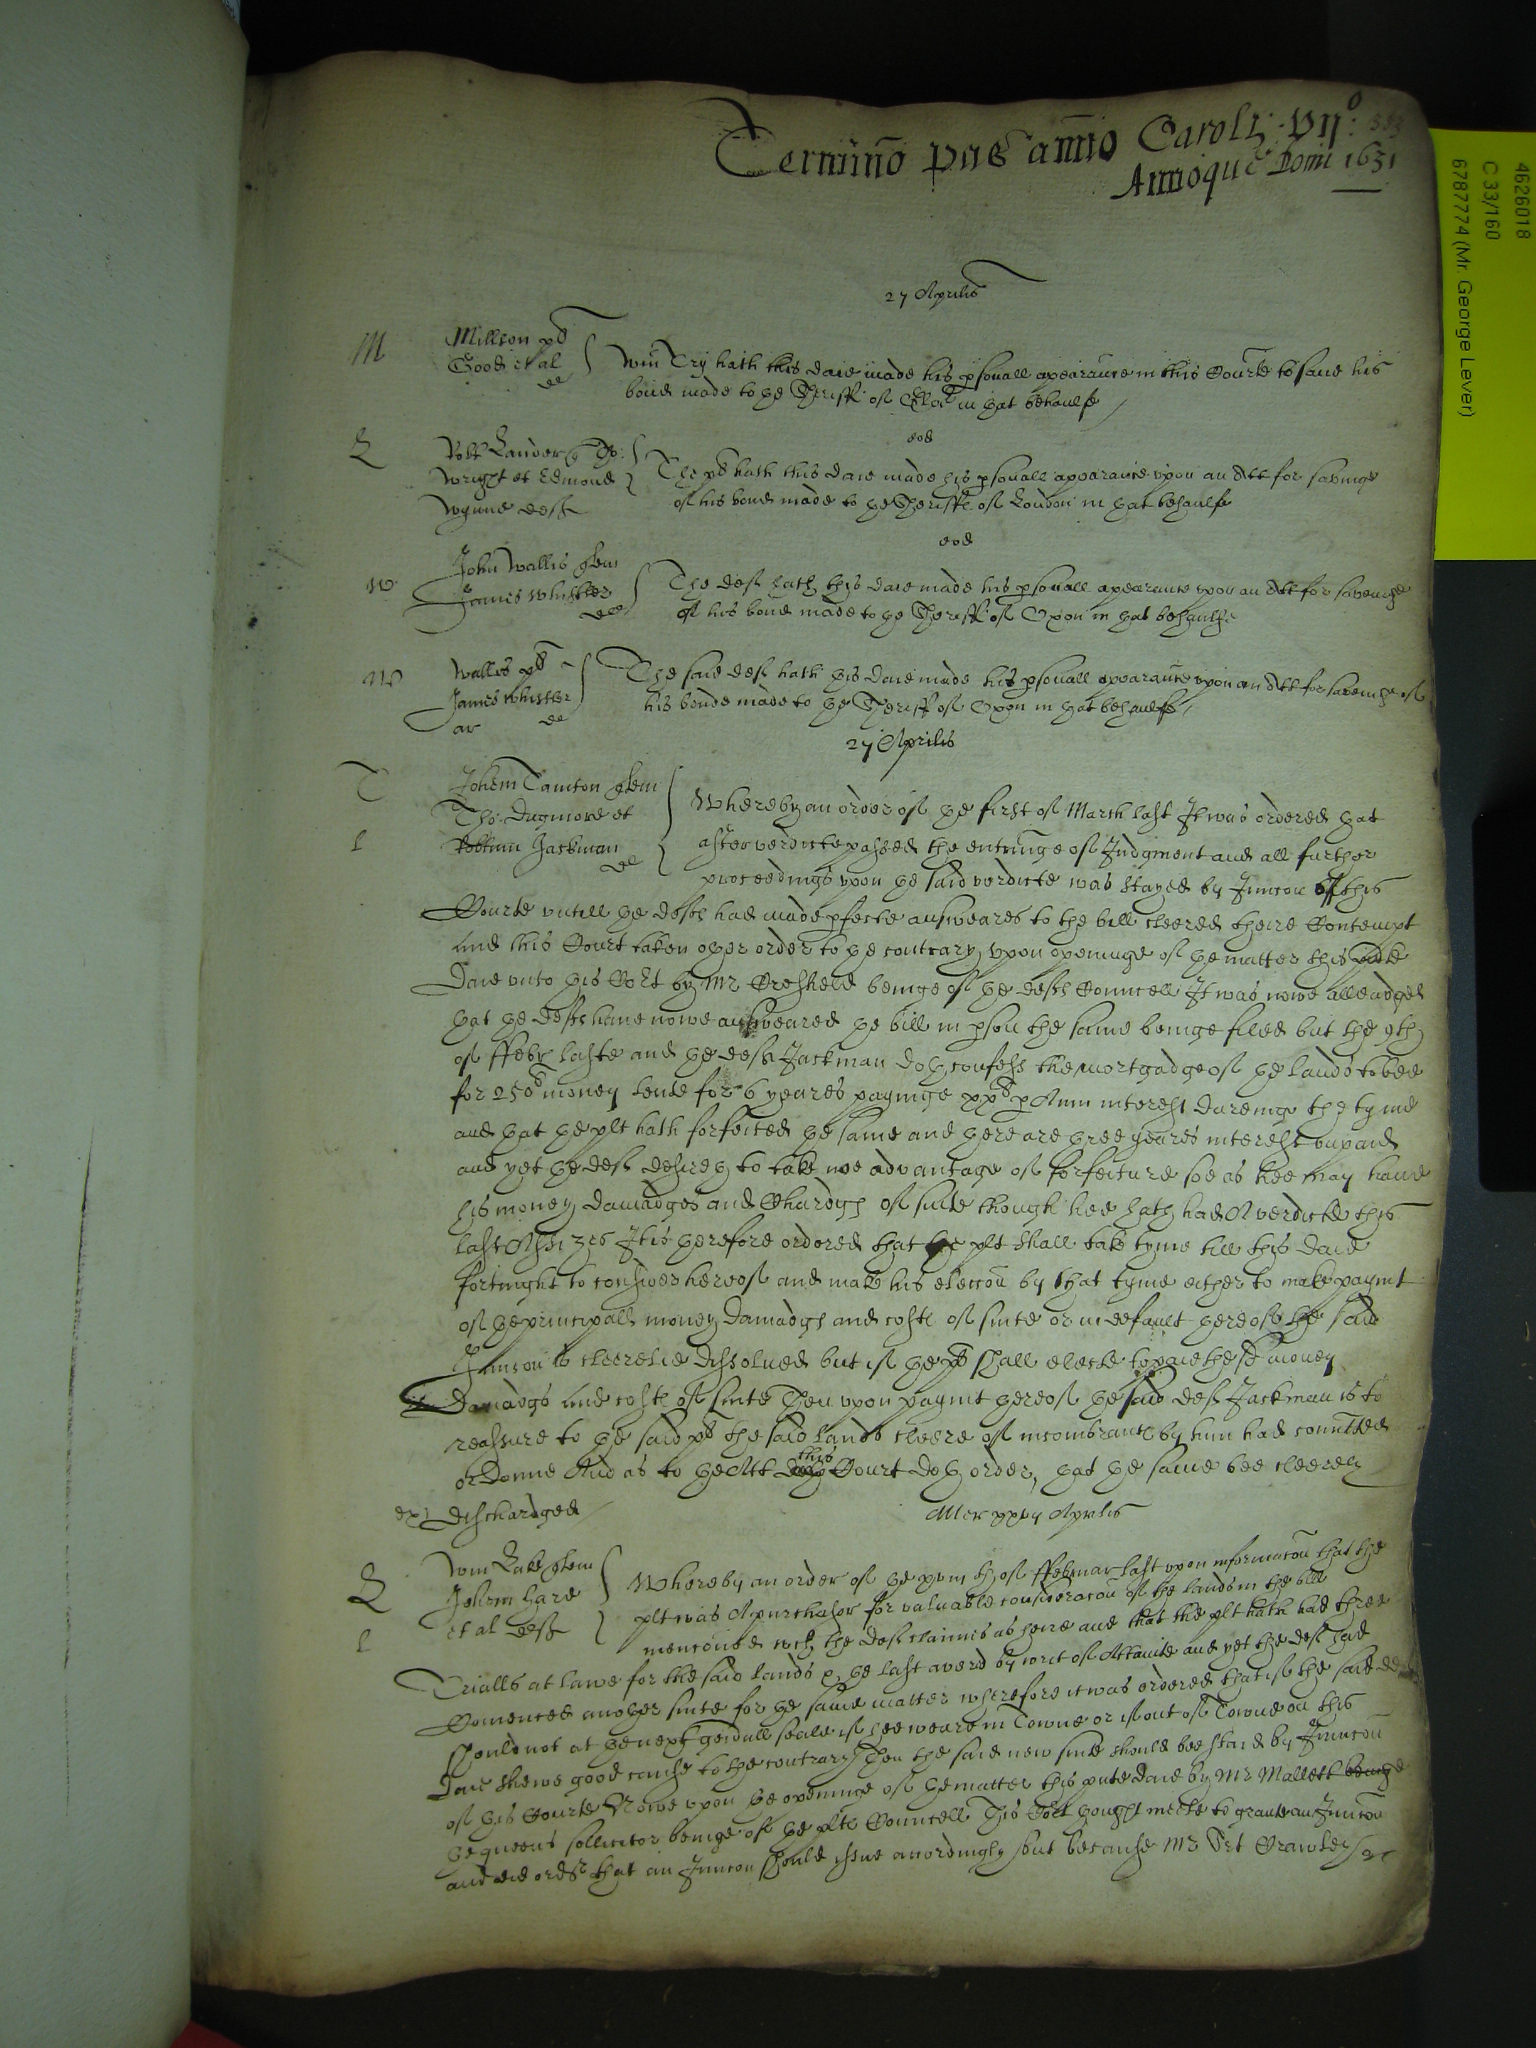 Termino pas anno Caroli: vij°:
Annoque Domi 1631
4626018
C 33/160
6787774 (Mr. George Lever)
27 Aprilis
M
Millson plt
Good et al
de
Wm Try hath this daie made his psonall apearance in this Courte to save his
bond made to ye Sheriff of in yat behaulfe
eod
L
Robt Lander Tho:
Wright et Edmond
Wynne deft
The plt hath this daie made his psonall apparance vpon an Att for savinge
of his bond made to ye Sheriffe of London in yat behaulfe
eod
W
John Wallis quer
James Whistler
def
The def hath this daie made his psonall apearance vpon an Att for saveinge
of his bond made to ye Sheriff of Oxon in yat behaulfe
W
Wallis plt
James Whistler
ar de
The said def hath this daie made his psonall apparance vpon an Att for saveinge of
his bonde made to ye Sheriff of Oxon in yat behaulfe
27 Aprilis
T
Johem Taunton quer
Tho: Dugmore et
Jackman
de
Whereby an order of ye first of March last It was ordered yat
after verdicte passed the entringe of Judgment and all further
proceedings vpon ye said verdicte was stayed by Iniuncon of this
Courte vntill ye defts had made pfecte answeares to the bill cleered theire Contempt
and this Court taken oyer order to ye contrary vpon openinge of ye matter this
Daie vnto this Cort by Mr Cresheld beinge of ye defts Councell It was nowe alleadged
yat ye defts have nowe answeared ye bill in pson the same beinge filed but the 9th
of ffebr laste and ye deft Jackman doth confess the mortgadge of ye lands to bee
for 250l money lent for 6 yeares payinge xxl p Ann interest dureinge the tyme
and yat ye plt hath forfeited ye same and there are three yeares interest vnpaid
and yet ye deft desireth to take noe advantage of forfeiture soe as hee may have
his money damadges and Chardges of suite though hee hath had A verdicte this
last Assizes It is yerefore ordered that ye plt shall take tyme till this daie
fortnight to consider hereof and make his eleccon by that tyme either to make paymt
of ye principall money damadges and costs of suite or in default yereof the said
Iniuncon is cleerelie dissolued but if ye plt shall electe to paie the sd money
Damadgs and costs of suite Then vpon paymt yereof ye said deft Jackman is to
reassure to ye said plt the said lands cleere of incombrances by him had comitted
or Donne And as to ye Att this Court doth order, yat ye same bee cleerely
exr dischardged
Mer xxvij Aprilis
L
Wm Lake quer
Johem Hare
et al deft
Whereby an order of ye xviij th of ffebruar last vpon informacon that the
plt was A purchasor for valuable consideracon of the lands in the bill
menconed wch the deft claimes as heire and that the plt hath had three
Trialls at lawe for the said lands ye last averd by writ of Attainte and yet the deft had
Comenced another suite for ye same matter wherefore it was ordered that if the said def
should not at ye next genall seale if hee weare in Towne or if out of Towne on this
daie shewe good cause to the contrary Then the said new suite should bee staid by Iniuncon
of this Courte Nowe vpon ye openinge of ye matter this pnte daie by Mr Mallett
ye queens sollicitor beinge of ye plts Councell This Cort thought meete to graunte an Iniuncon
and did order that an Iniuncon should issue accordingly but because Mr Srt Crawley